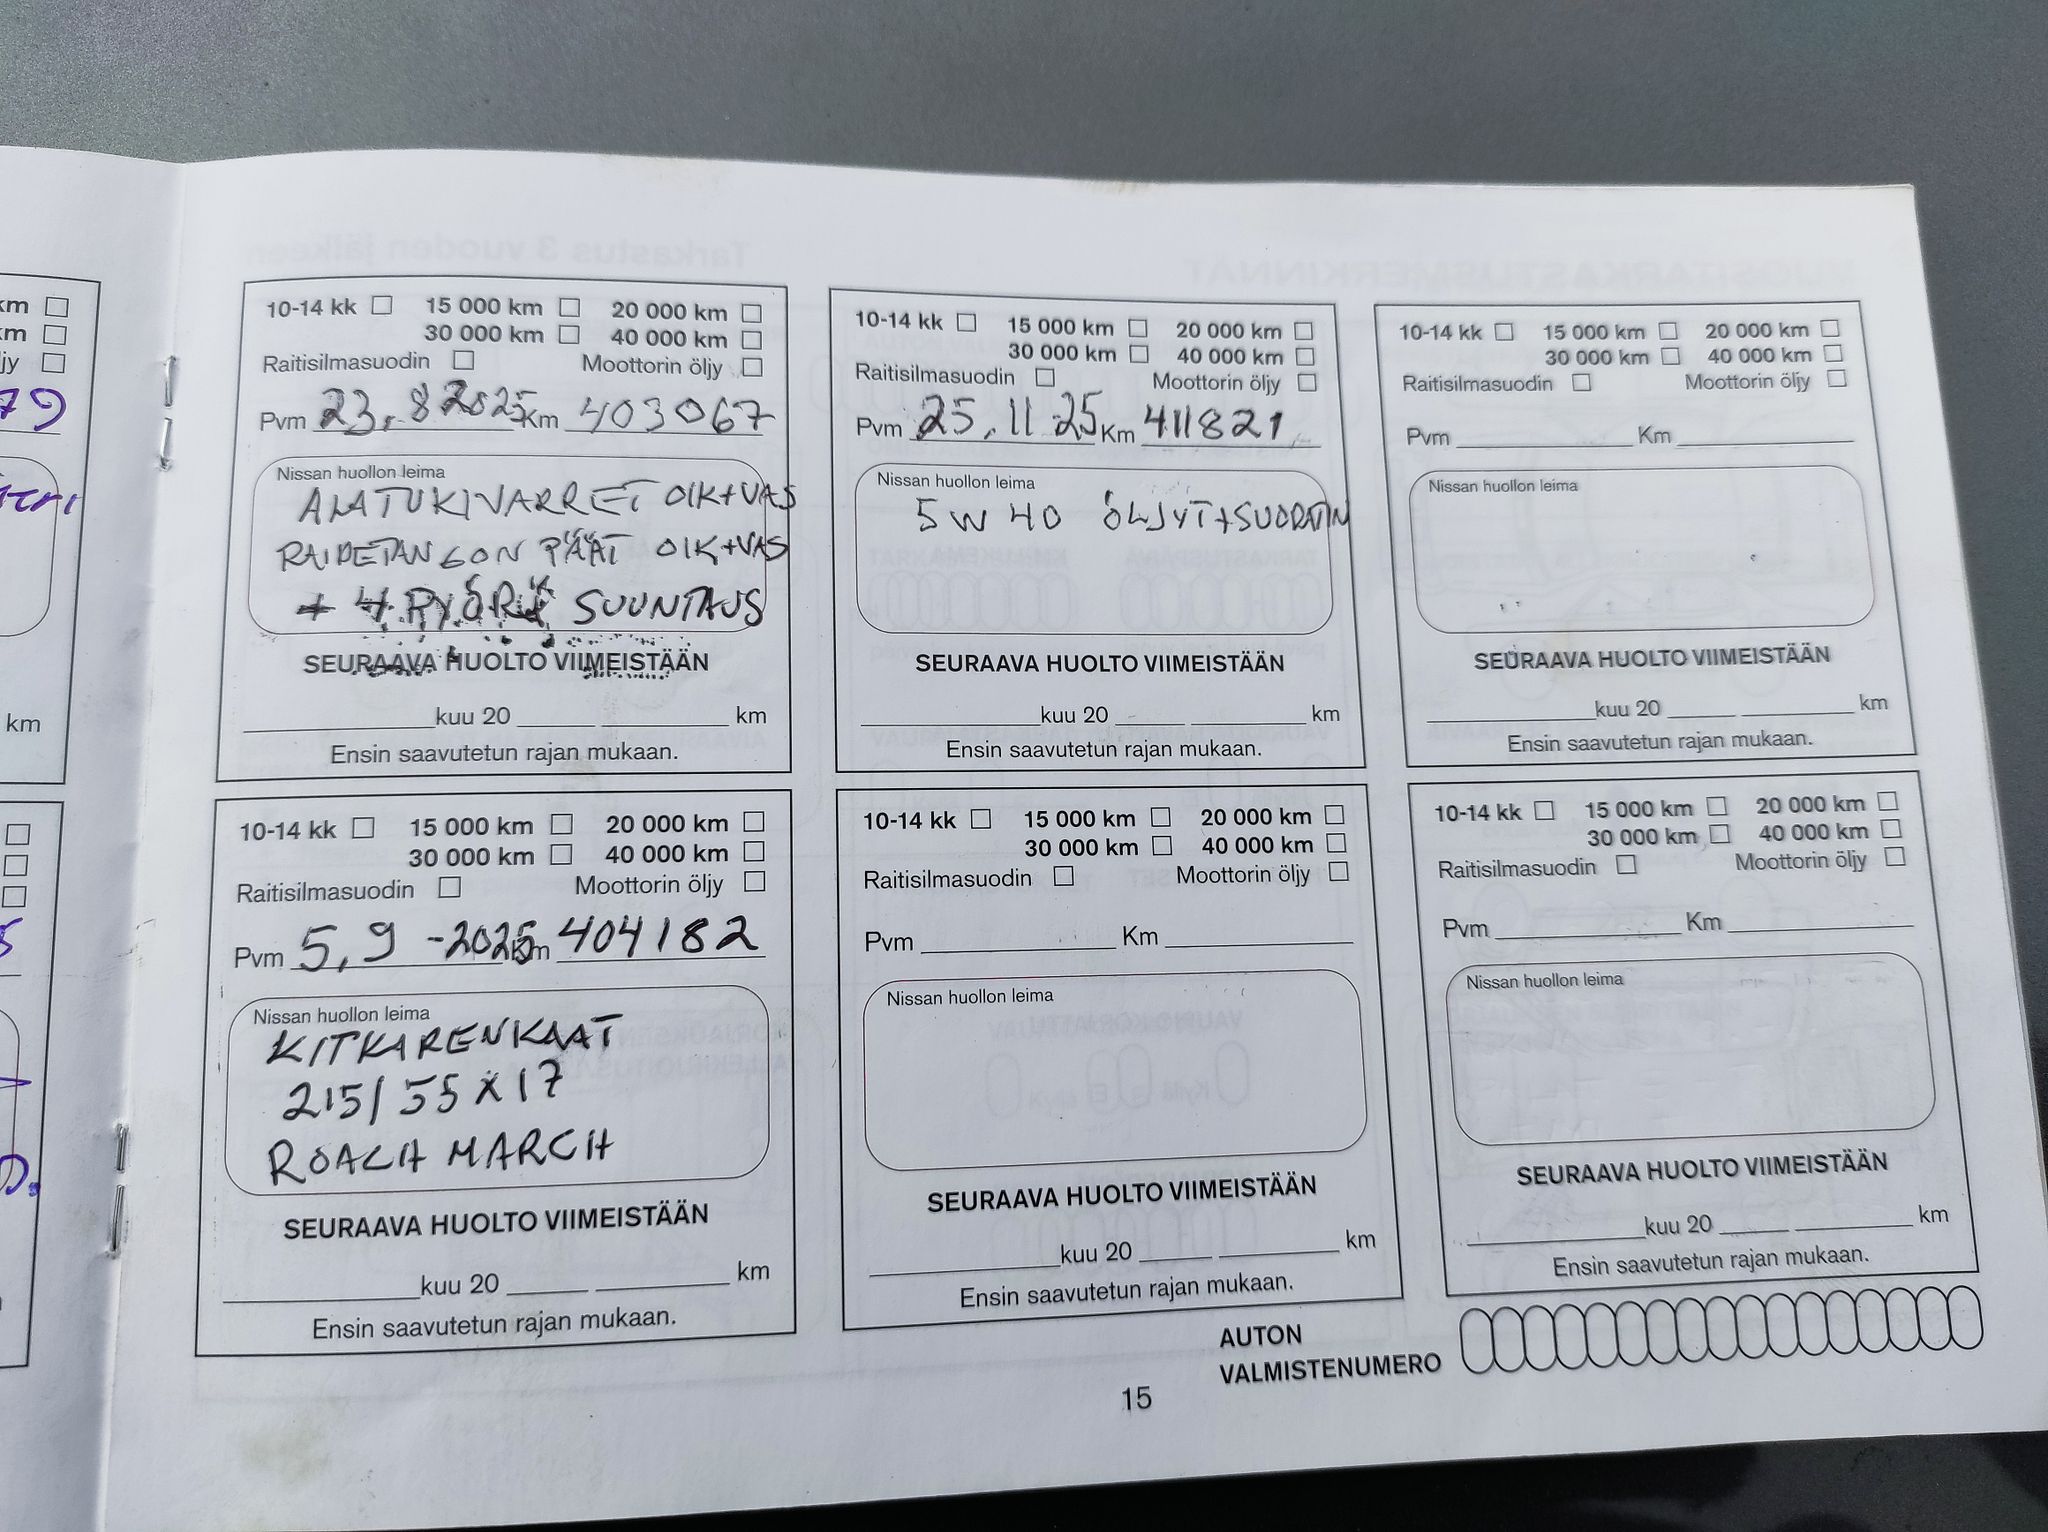 km
km
jy
79
km
5
10-14 kk 15 000 km 20 000 km
30 000 km 40 000 km
Raitisilmasuodin Moottorin öljy
Pvm 23.8 2025 Km 403067
Nissan huollon leima
ALATUKIVARRET OIK+VAS
RAIDETANGON PÄÄT OIK+VAS
+ 4 PYÖRÄ SUUNTAUS
SEURAAVA HUOLTO VIIMEISTÄÄN
kuu 20 km
Ensin saavutetun rajan mukaan.
10-14 kk 15 000 km 20 000 km
30 000 km 40 000 km
Raitisilmasuodin Moottorin öljy
Pvm 25.11.25 Km 411821
Nissan huollon leima
5W40 ÖLJYT+SUODATIN
SEURAAVA HUOLTO VIIMEISTÄÄN
kuu 20 km
Ensin saavutetun rajan mukaan.
10-14 kk 15 000 km 20 000 km
30 000 km 40 000 km
Raitisilmasuodin Moottorin öljy
Pvm Km
Nissan huollon leima
SEURAAVA HUOLTO VIIMEISTÄÄN
kuu 20 km
Ensin saavutetun rajan mukaan.
10-14 kk 15 000 km 20 000 km
30 000 km 40 000 km
Raitisilmasuodin Moottorin öljy
Pvm 5.9-2025 Km 404182
Nissan huollon leima
KITKARENKAAT
215/55X17
ROACH MARCH
SEURAAVA HUOLTO VIIMEISTÄÄN
kuu 20 km
Ensin saavutetun rajan mukaan.
10-14 kk 15 000 km 20 000 km
30 000 km 40 000 km
Raitisilmasuodin Moottorin öljy
Pvm Km
Nissan huollon leima
SEURAAVA HUOLTO VIIMEISTÄÄN
kuu 20 km
Ensin saavutetun rajan mukaan.
10-14 kk 15 000 km 20 000 km
30 000 km 40 000 km
Raitisilmasuodin Moottorin öljy
Pvm Km
Nissan huollon leima
SEURAAVA HUOLTO VIIMEISTÄÄN
kuu 20 km
Ensin saavutetun rajan mukaan.
AUTON
VALMISTENUMERO
15